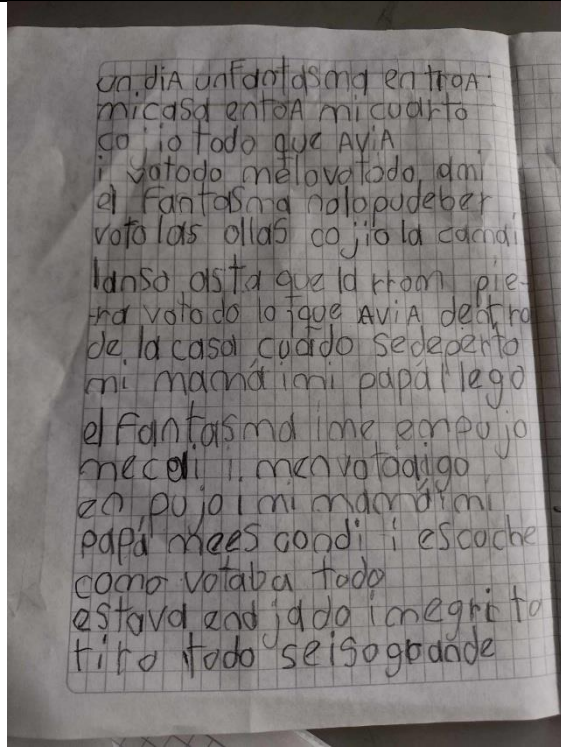 un diA unfantasma en troA
micasa entoA mi cuarto
co jio todo que AviA
i votodo melovotodo ami
el fantasma nolopudeber
voto las ollas co jio la cama i
lanso asta que la rrom pie-
ra votodo lo ique AviA dentro
de la casa cuado sedeperto
mi mamá imi papá llego
el fantasma ime enpu jo
mecai i
en pujo i mi mamá imi
papá mees condi i escuche
como votaba todo
estava eno jado imegri to
tiro todo seisogrande